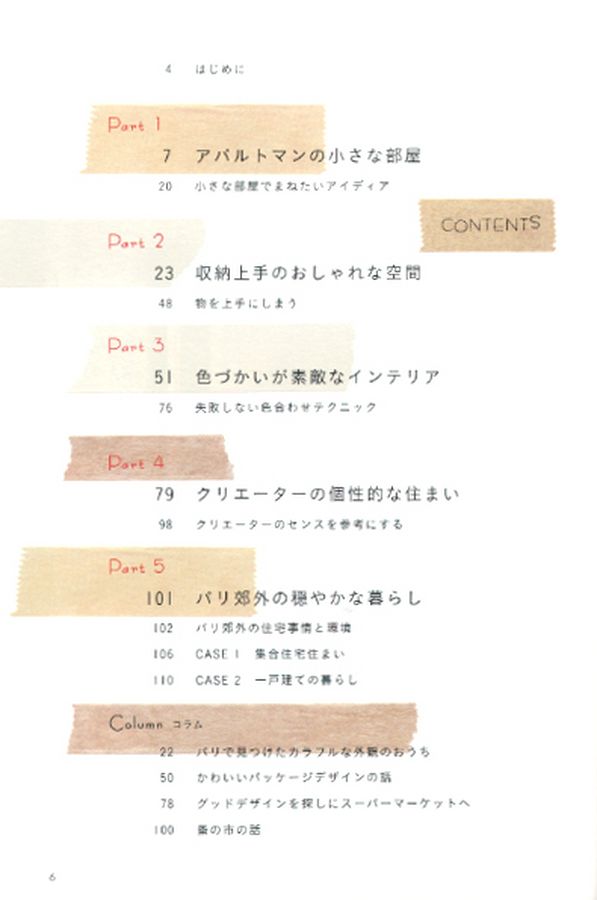 4 はじめに
Part 1
7 アパルトマンの小さな部屋
20 小さな部屋でまねたいアイディア
CONTENTS
Part 2
23 収納上手のおしゃれな空間
48 物を上手にしまう
Part 3
51 色づかいが素敵なインテリア
76 失敗しない色合わせテクニック
Part 4
79 クリエーターの個性的な住まい
98 クリエーターのセンスを参考にする
Part 5
101 パリ郊外の穏やかな暮らし
102 パリ郊外の住宅事情と環境
106 CASE 1 集合住宅住まい
110 CASE 2 一戸建ての暮らし
Column コラム
22 パリで見つけたカラフルな外観のおうち
50 かわいいパッケージデザインの話
78 グッドデザインを探しにスーパーマーケットへ
100 蚤の市の話
6